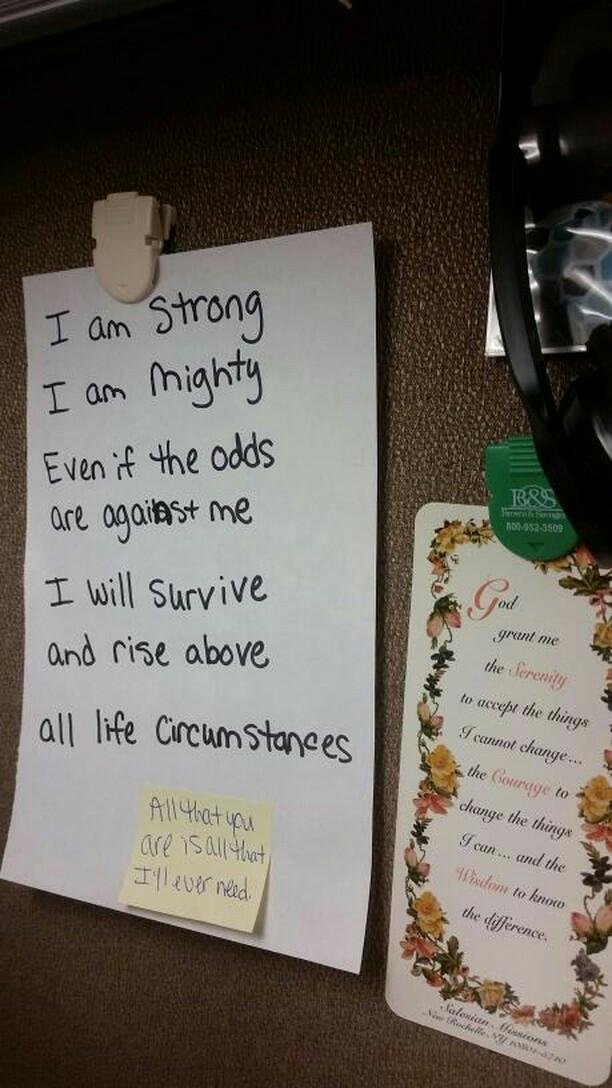 I am Strong
I am Mighty
Even if the odds
are against me
I will survive
and rise above
all life Circumstances
All that you
are is all that
I'll ever need.
B&S
800-952-3509
God
grant me
the Serenity
to accept the things
I cannot change...
the Courage to
change the things
I can... and the
Wisdom to know
the difference.
Salesian Missions
New Rochelle NY 10801-5710